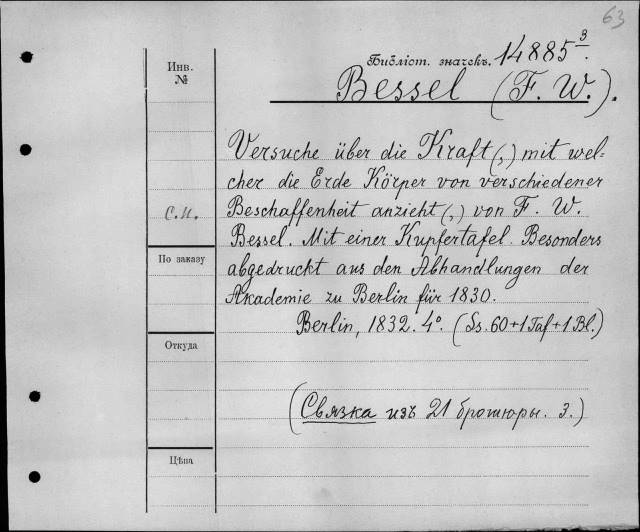 63
Инв.
№
Библіот. значекъ. 14885 3.
Bessel (F. W.).
Versuche über die Kraft(,) mit wel=
cher die Erde Körper von verschiedener
С.И. Beschaffenheit anzieht(,) von F. W.
Bessel. Mit einer Kupfertafel. Besonders
По заказу
abgedruckt aus den Abhandlungen der
Akademie zu Berlin für 1830.
Berlin, 1832. 4°. (Ss. 60+1 Taf+1 Bl.)
Откуда
(Связка изъ 21 брошюры. 3.)
Цѣна